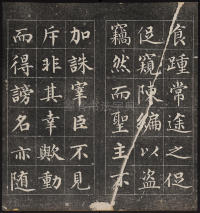 食踵常途之促
促窺陳編以盜
竊然而聖主不
加誅宰臣不見
斥非其幸歟動
而得謗名亦隨